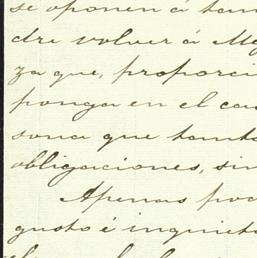 se oponen á tan
dre volver á Mej
za que, proporci
ponga en el ca
sona que tanta
obligaciones, sin
Apenas pod
gusto é inquiet